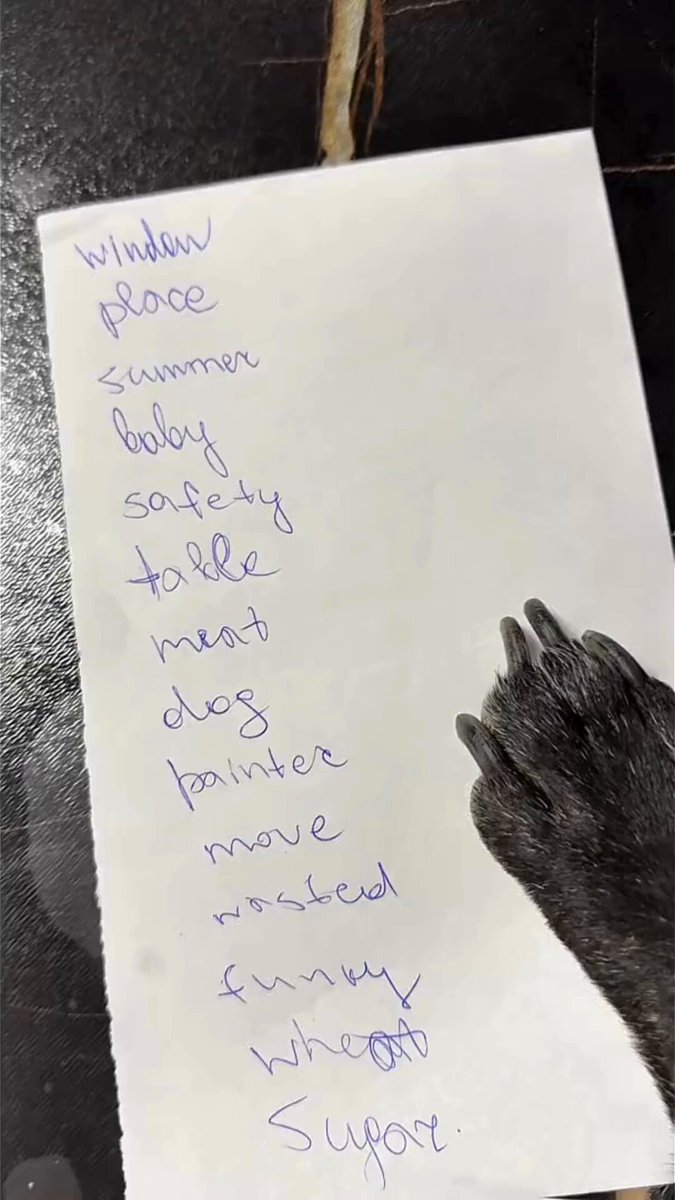 window
place
summer
baby
safety
table
meat
dog
painter
move
wasted
funny
wheat
Sugar.